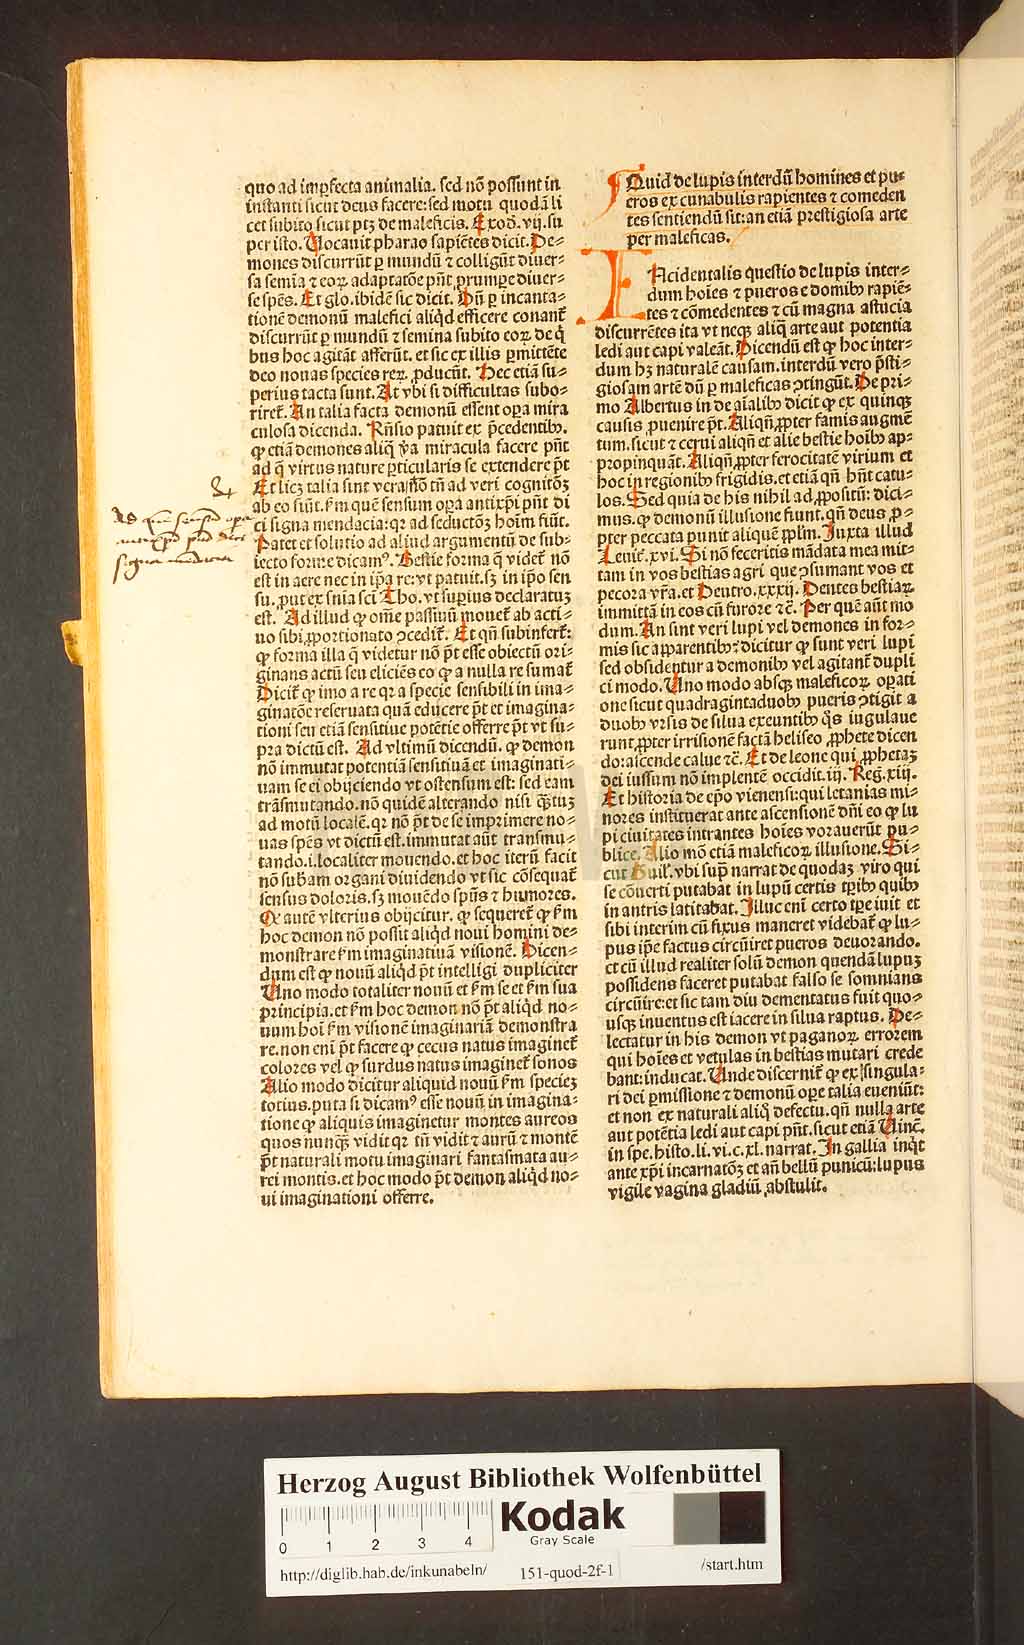 quo ad imꝑfecta animalia. sed nō possunt in
instanti sicut deus facere: sed motu quodā li
cet subito sicut ptꝫ de maleficis. Exod. vij. su
per isto. Vocauit pharao sapiētes dicit. De-
mones discurrūt ꝑ mundū ⁊ colligūt diuer-
sa semīa ⁊ eoꝝ adaptatōe pn̄t prumpe diuer-
se spēs. Et glo. ibidē sic dicit. Dū ꝑ incanta-
tionē demonū malefici aliqͥd efficere conant̄
discurrūt ꝑ mundū ⁊ semina subito eoꝝ de qͥ
bus hoc agitāt afferūt. et sic ex illis ꝑmittēte
deo nouas species reꝝ ꝓducūt. Hec etiā su-
perius tacta sunt. At vbi si difficultas subo-
riret̄. An talia facta demonū essent oꝑa mira
culosa dicenda. Rn̄sio patuit ex p̄cedentibꝰ.
ꝙ etiā demones aliq̄ v̄a miracula facere pn̄t
ad q̄ virtus nature ꝑticularis se extendere p̄t
Et licꝫ talia sint vera nō tn̄ ad veri cognitōꝫ
ab eo fiūt. ẜm que sensum oꝑa antixp̄i pn̄t di
ci signa mendacia: qꝛ ad seductōꝫ hoīm fiūt.
Patet et solutio ad aliud argumentū de sub-
iecto forme dicamꝰ. Bestie forma q̄ videt̄ nō
est in aere nec in ip̄a re: vt patuit. sꝫ in ip̄o sen
su. ꝓut ex snīa scī Tho. vt supius declaratuꝫ
est. Ad illud ꝙ om̄e passiuū mouet̄ ab acti-
uo sibi ꝓportionato ↄcedit̄. Et qn̄ subinfert̄:
ꝙ forma illa q̄ videtur nō p̄t esse obiectū ori-
ginans actū seu eliciēs eo ꝙ a nulla re sumat̄
Dicit̄ ꝙ imo a re qꝛ a specie sensibili in ima-
ginatōe reseruata quā educere p̄t et imagina-
tioni seu etiā sensitiue potētie offerre p̄t vt su-
pra dictū est. Ad vltimū dicendū. ꝙ demon
nō immutat potentiā sensitiuā et imaginati-
uam se ei obijciendo vt ostensum est: sed eam
trāsmutando. nō quidē alterando nisi q̄ꝫtuꝫ
ad motū localē. qꝛ nō p̄t de se imprimere no-
uas spēs vt dictū est. immutat aūt transmu-
tando. i. localiter mouendo. et hoc iterū facit
nō subam organi diuidendo vt sic cōsequat̄
sensus doloris. sꝫ mouēdo spūs ⁊ humores.
Qꝛ autē vlterius obijcitur. ꝙ sequeret̄ ꝙ ẜm
hoc demon nō possit aliqͥd noui homini de-
monstrare ẜm imaginatiuā visionē. Dicen-
dum est ꝙ nouū aliqͥd p̄t intelligi dupliciter
Uno modo totaliter nouū et ẜm se et ẜm sua
principia. et ẜm hoc demon nō p̄t aliqͥd no-
uum hoī ẜm visionē imaginariā demonstra
re. non enī p̄t facere ꝙ cecus natus imaginet̄
colores vel ꝙ surdus natus imaginet̄ sonos
Alio modo dicitur aliquid nouū ẜm specieꝫ
totius. puta si dicamꝰ esse nouū in imagina-
tione ꝙ aliquis imaginetur montes aureos
quos nunqꝫ vidit qꝛ tn̄ vidit ⁊ aurū ⁊ montē
p̄t naturali motu imaginari fantasmata au-
rei montis. et hoc modo p̄t demon aliqͥd no-
ui imaginationi offerre.
Quid de lupis interdū homines et pu-
eros ex cunabulis rapientes ⁊ comeden
tes sentiendū sit: an etiā prestigiosa arte
per maleficas.
Incidentalis questio de lupis inter-
dum hoīes ⁊ pueros e domibꝰ rapiē-
tes ⁊ cōmedentes ⁊ cū magna astucia
discurrētes ita vt neqꝫ aliq̄ arte aut potentia
ledi aut capi valeāt. Dicendū est ꝙ hoc inter-
dum hꝫ naturalē causam. interdū vero p̄sti-
giosam artē dū ꝑ maleficas ↄtingūt. De pri-
mo Albertus in de aīalibꝰ dicit ꝙ ex quinqꝫ
causis ꝓuenire p̄t. Aliqn̄ ꝓpter famis augmē
tum. sicut ⁊ cerui aliqn̄ et alie bestie hoībꝰ ap-
propinquāt. Aliqn̄ ꝓpter ferocitatē virium et
hoc in regionibꝰ frigidis. et etiā qn̄ hn̄t catu-
los. Sed quia de his nihil ad ꝓpositū: dici-
mus. ꝙ demonū illusione fiunt. qn̄ deus ꝓ-
pter peccata punit aliquē pp̄lm. Iuxta illud
Leuit̄. xxvi. Si nō feceritis mādata mea mit-
tam in vos bestias agri que ↄsumant vos et
pecora vr̄a. et Deutro. xxxij. Dentes bestiaꝝ
immittā in eos cū furore ⁊c̄. Per quē aūt mo
dum. An sint veri lupi vel demones in for-
mis sic apparentibꝰ: dicitur ꝙ sunt veri lupi
sed obsidentur a demonibꝰ vel agitant̄ dupli
ci modo. Uno modo absqꝫ maleficoꝝ oꝑati
one sicut quadraginta duobꝰ pueris ↄtigit a
duobꝰ vrsis de silua exeuntibꝰ qͦs iugulaue
runt ꝓpter irrisionē factā heliseo ꝓphete dicen
do: ascende calue ⁊c̄. Et de leone qui ꝓphetaꝫ
dei iussum nō implentē occidit. iij. Reg. xiij.
Et historia de ep̄o vienensi: qui letanias mi-
nores instituerat ante ascensionē dn̄i eo ꝙ lu
pi ciuitates intrantes hoīes vorauerūt pu-
blice. Alio mō etiā maleficoꝝ illusione. Si-
cut Guil̄. vbi sup̄ narrat de quodaꝫ viro qui
se cōuerti putabat in lupū certis tꝑibꝰ quibꝰ
in antris latitabat. Illuc enī certo tꝑe iuit et
sibi interim cū fixus maneret videbat̄ ꝙ lu-
pus ip̄e factus circūiret pueros deuorando.
et cū illud realiter solū demon quendā lupuꝫ
possidens faceret putabat falso se somnians
circūire: et sic tam diu dementatus fuit quo-
usqꝫ inuentus est iacere in silua raptus. De-
lectatur in his demon vt paganoꝝ errorem
qui hoīes et vetulas in bestias mutari crede
bant: inducat. Unde discernit̄ ꝙ ex singula-
ri dei ꝑmissione ⁊ demonū oꝑe talia eueniūt:
et non ex naturali aliq̄ defectu. qn̄ nulla arte
aut potētia ledi aut capi pn̄t. sicut etiā Uinc̄.
in spe. histo. li. vi. c. xl. narrat. In gallia inqͥt
ante xp̄i incarnatōꝫ et an̄ bellū punicū: lupus
vigile vagina gladiū abstulit.
Herzog August Bibliothek Wolfenbüttel
0 1 2 3 4
Kodak
Gray Scale
http://diglib.hab.de/inkunabeln/ 151-quod-2f-1 /start.htm